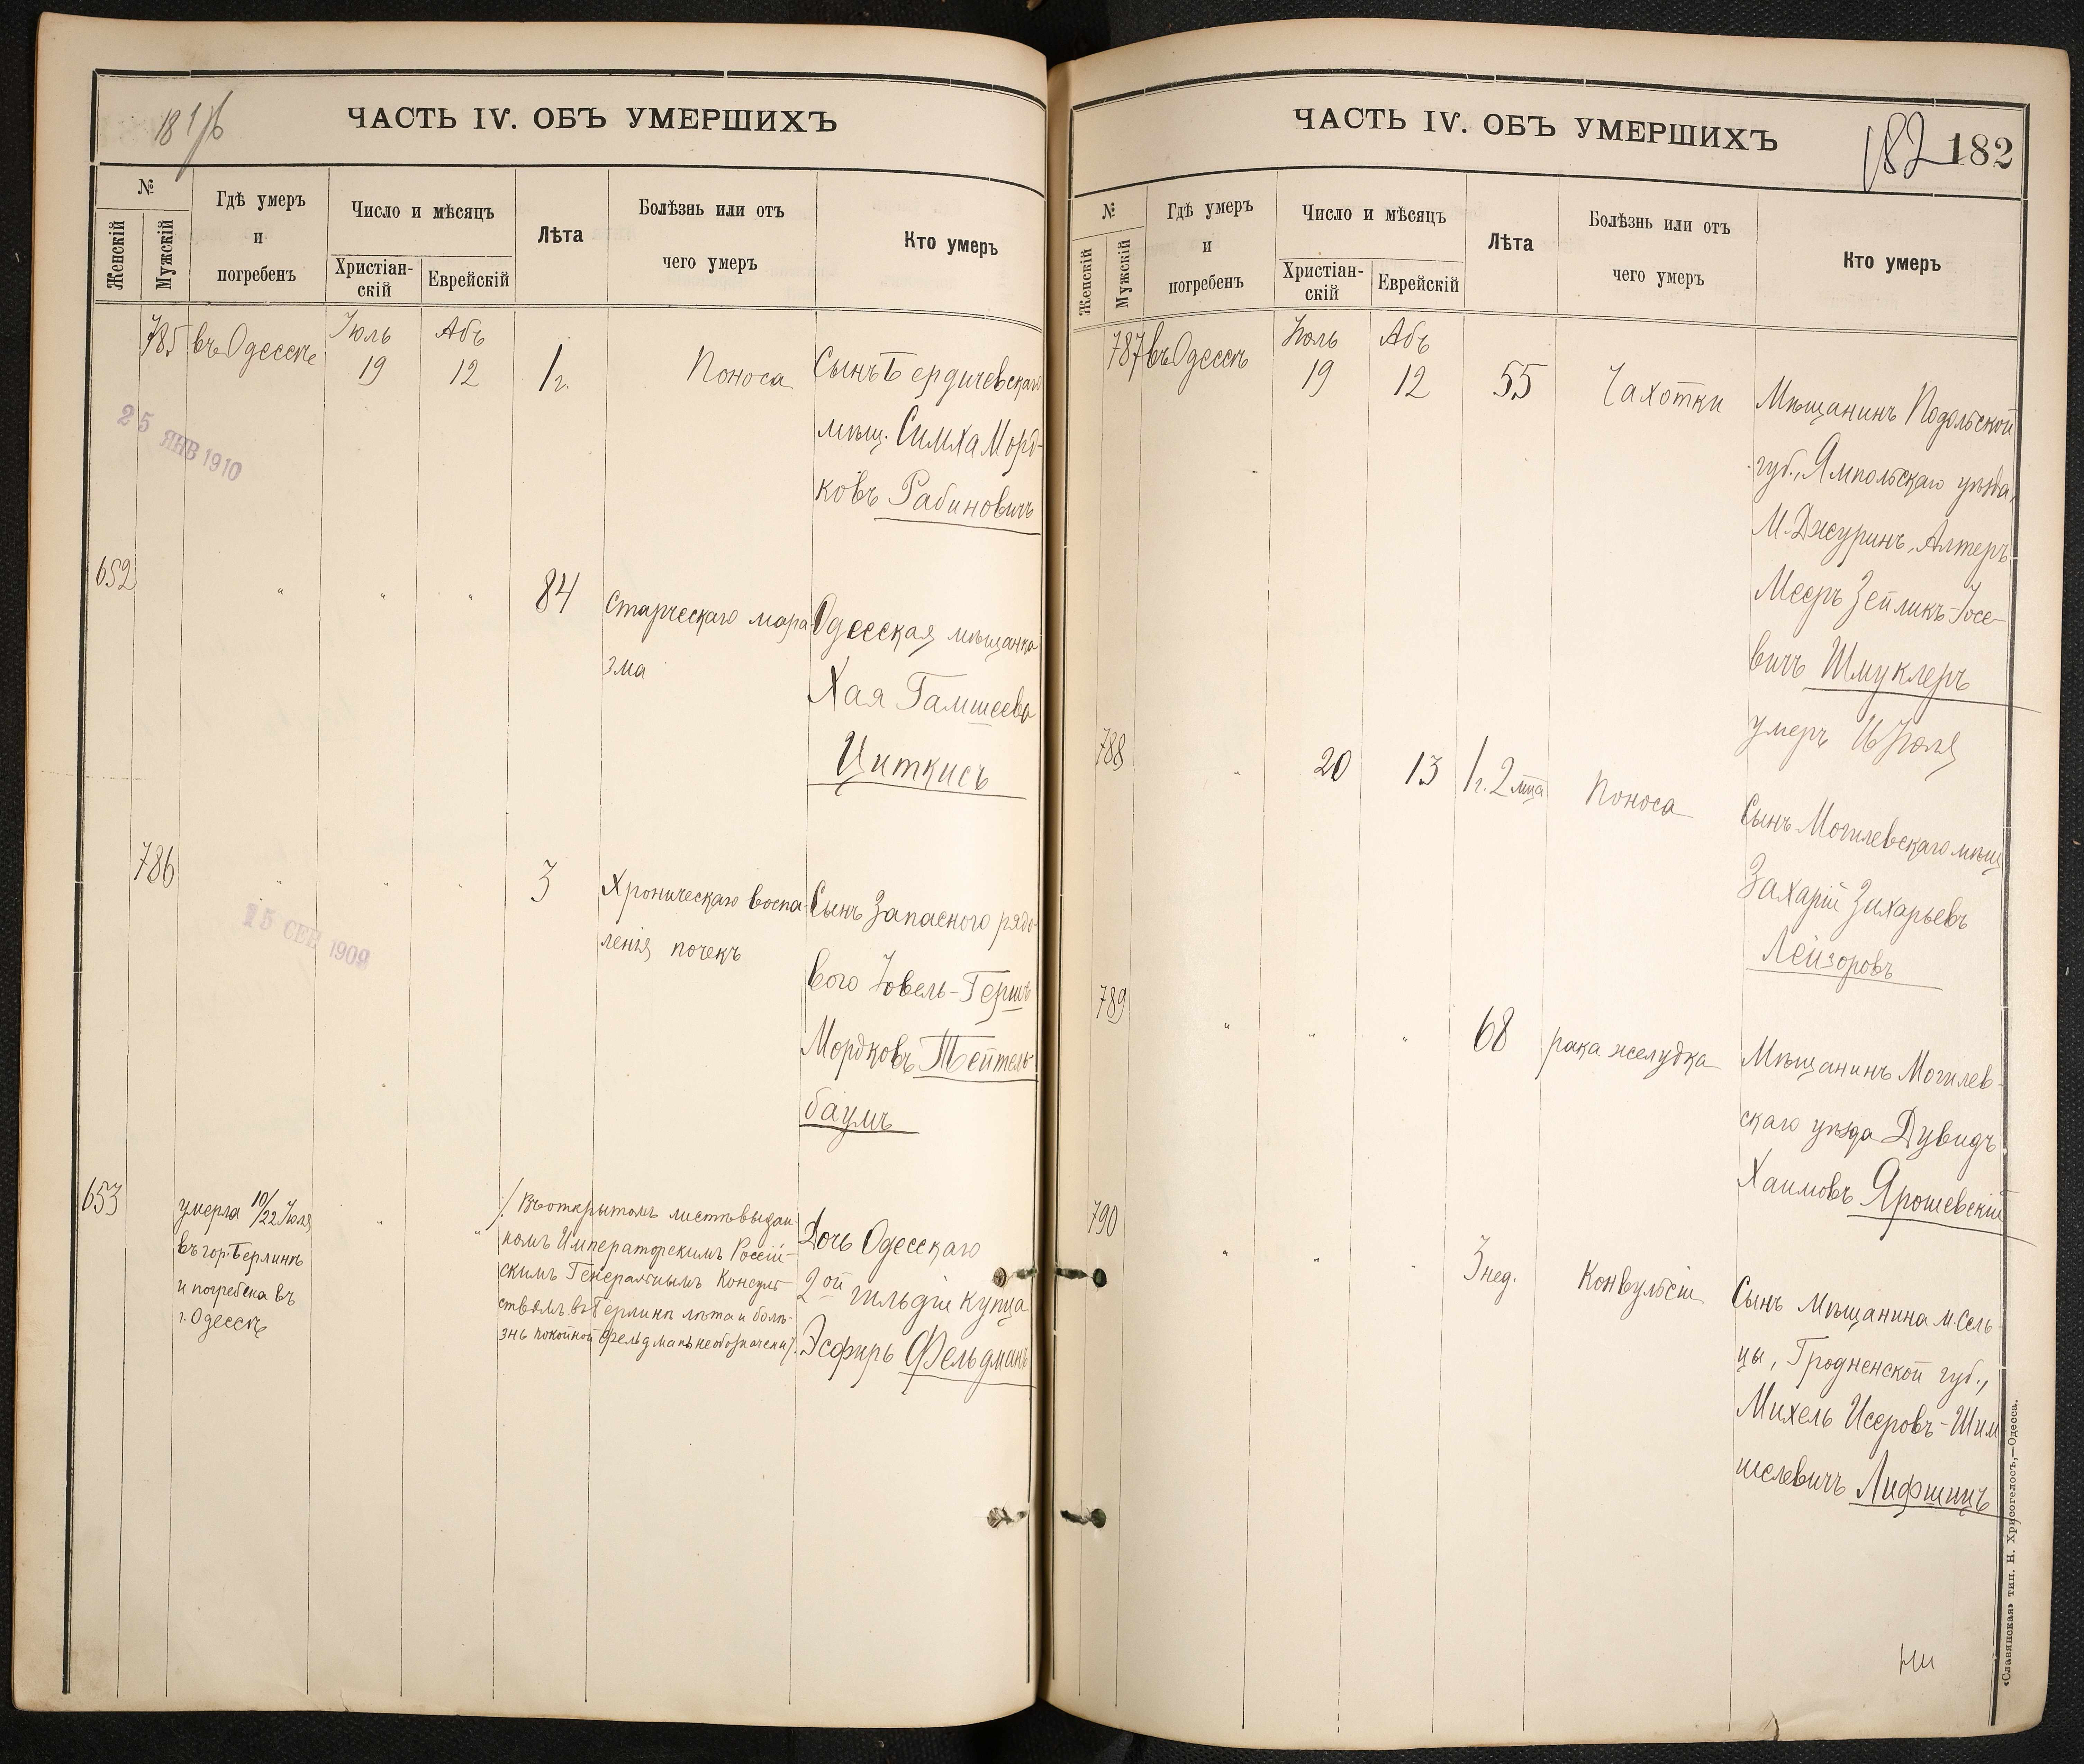 181/б
ЧАСТЬ IV. ОБЪ УМЕРШИХЪ
№
Женскій
Мужскій
Гдѣ умеръ
и
погребенъ
Число и мѣсяцъ
Христіан-
скій
Еврейскій
Лѣта
Болѣзнь или отъ
чего умеръ
Кто умеръ
785 въ Одессѣ Іюль 19 Абъ 12 1 г. Поноса Сынъ Бердичевскаго
мѣщ. Симха Морд-
ковъ Рабиновичъ
25 ЯНВ 1910
652 " " " 84 Старческаго мара
зма
Одесская мѣщанка
Хая Гамшеева
Циткисъ
786 " " " 3 Хроническаго воспа-
ленія почекъ
Сынъ Запасного рядо-
вого Іовель-Гершъ
Мордковъ Тейтель-
баумъ
25 СЕН 1908
653 умерла 10/22 Іюля
въ гор. Берлинѣ
и погребена въ
г. Одессѣ
" "
/: Въ открытомъ листѣ выдан-
номъ Императорскимъ Россій-
скимъ Генеральнымъ Консуль-
ствомъ въ Берлинѣ лѣта и болѣ-
знь покойной Фельдманъ необозначены :/
Дочь Одесскаго
2ой гильдіи купца
Эсфирь Фельдманъ
ЧАСТЬ IV. ОБЪ УМЕРШИХЪ
182 182
№
Женскій
Мужскій
Гдѣ умеръ
и
погребенъ
Число и мѣсяцъ
Христіан-
скій
Еврейскій
Лѣта
Болѣзнь или отъ
чего умеръ
Кто умеръ
787 въ Одессѣ Іюль 19 Абъ 12 55 Чахотки Мѣщанинъ Подольской
губ., Ямпольскаго уѣзда,
М. Джуринъ, Алтеръ
Мееръ Зейликъ-Іосе-
вичъ Шмуклеръ
умеръ 16 Іюля
788 " 20 13 1 г. 2 мца Поноса
Сынъ Могилевскаго мѣщ
Захарій Захарьевъ
Лейзоровъ
789 " " " 68 рака желудка Мѣщанинъ Могилев-
скаго уѣзда Дувидъ
Хаимовъ Ярошевскій
790 " " " 3 нед. Конвульсіи Сынъ Мѣщанина м. Сель-
цы, Гродненской губ.,
Михель Исеровъ-Шим
шелевичъ Лифшицъ
«Славянская» тип. Н. Хрисогелосъ,—Одесса.